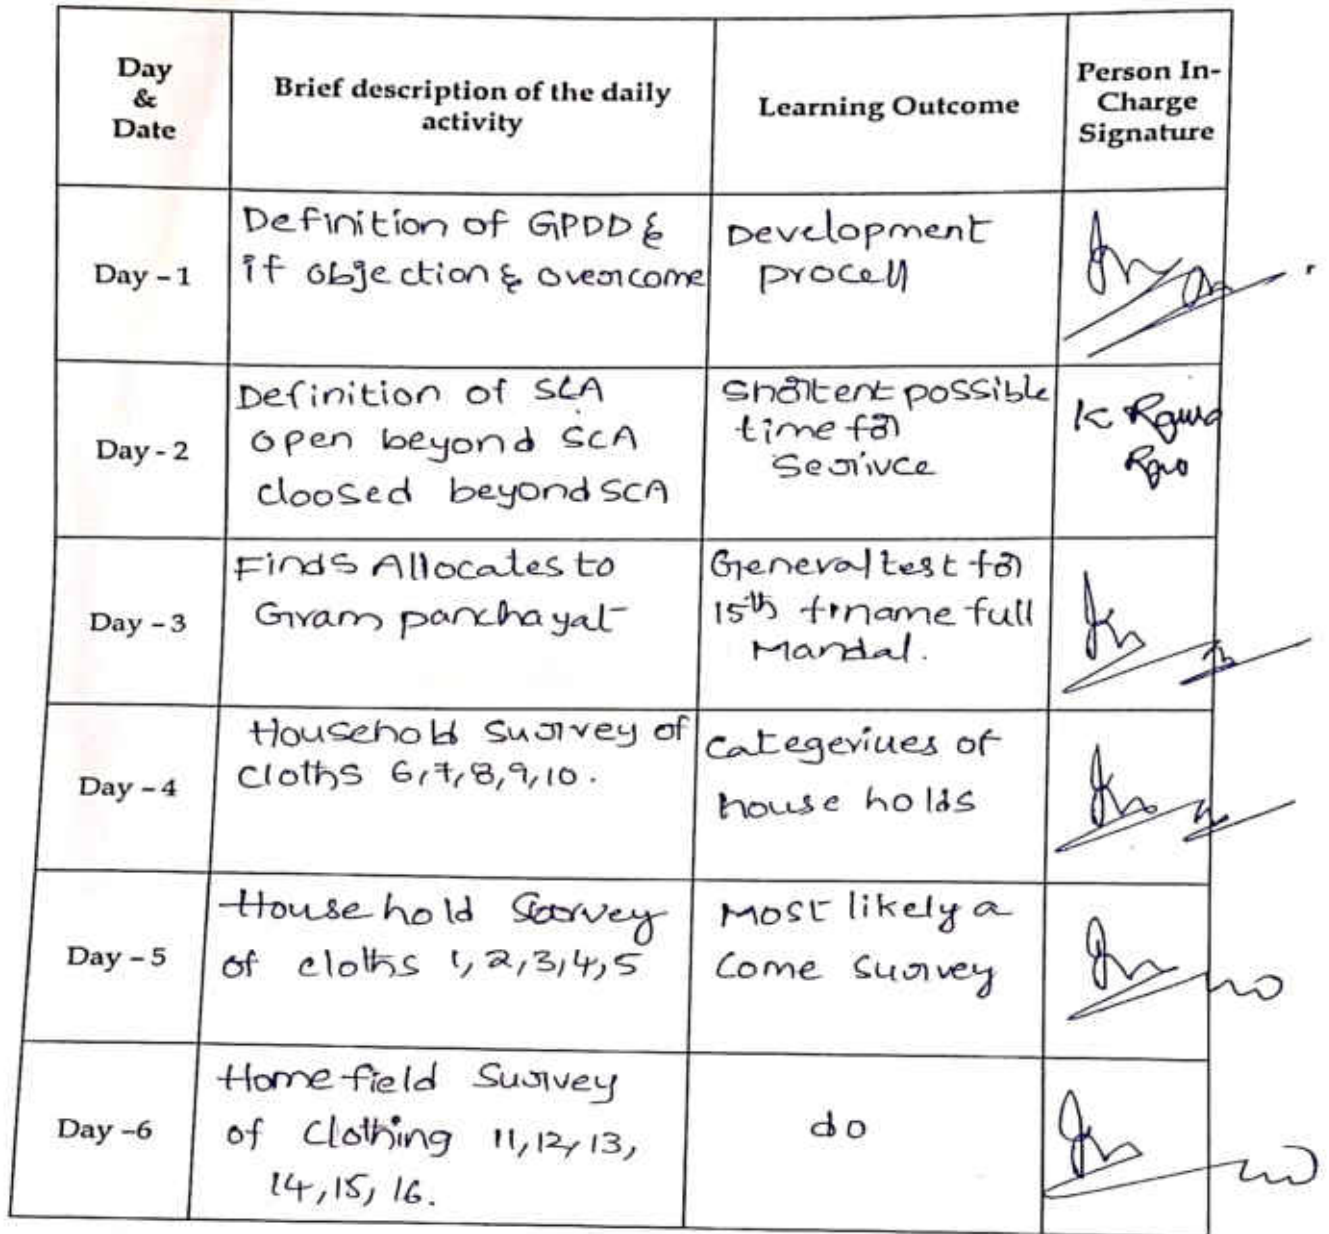 Day
&
Date
Brief description of the daily
activity
Learning Outcome
Person In-
Charge
Signature
Day - 1
Definition of GPDD &
if objection & overcome
Development
process
Day - 2
Definition of SLA
open beyond SCA
cloosed beyond SCA
Shortent possible
time for
Serivce
Day - 3
Finds Allocates to
Gram panchayat
General test for
15th finname full
Mandal.
Day - 4
Household Survey of
cloths 6,7,8,9,10.
Categeriues of
house holds
Day - 5
House hold Sarvey
of cloths 1,2,3,4,5
Most likely a
come survey
Day -6
Home field Survey
of Clothing 11,12,13,
14,15,16.
do